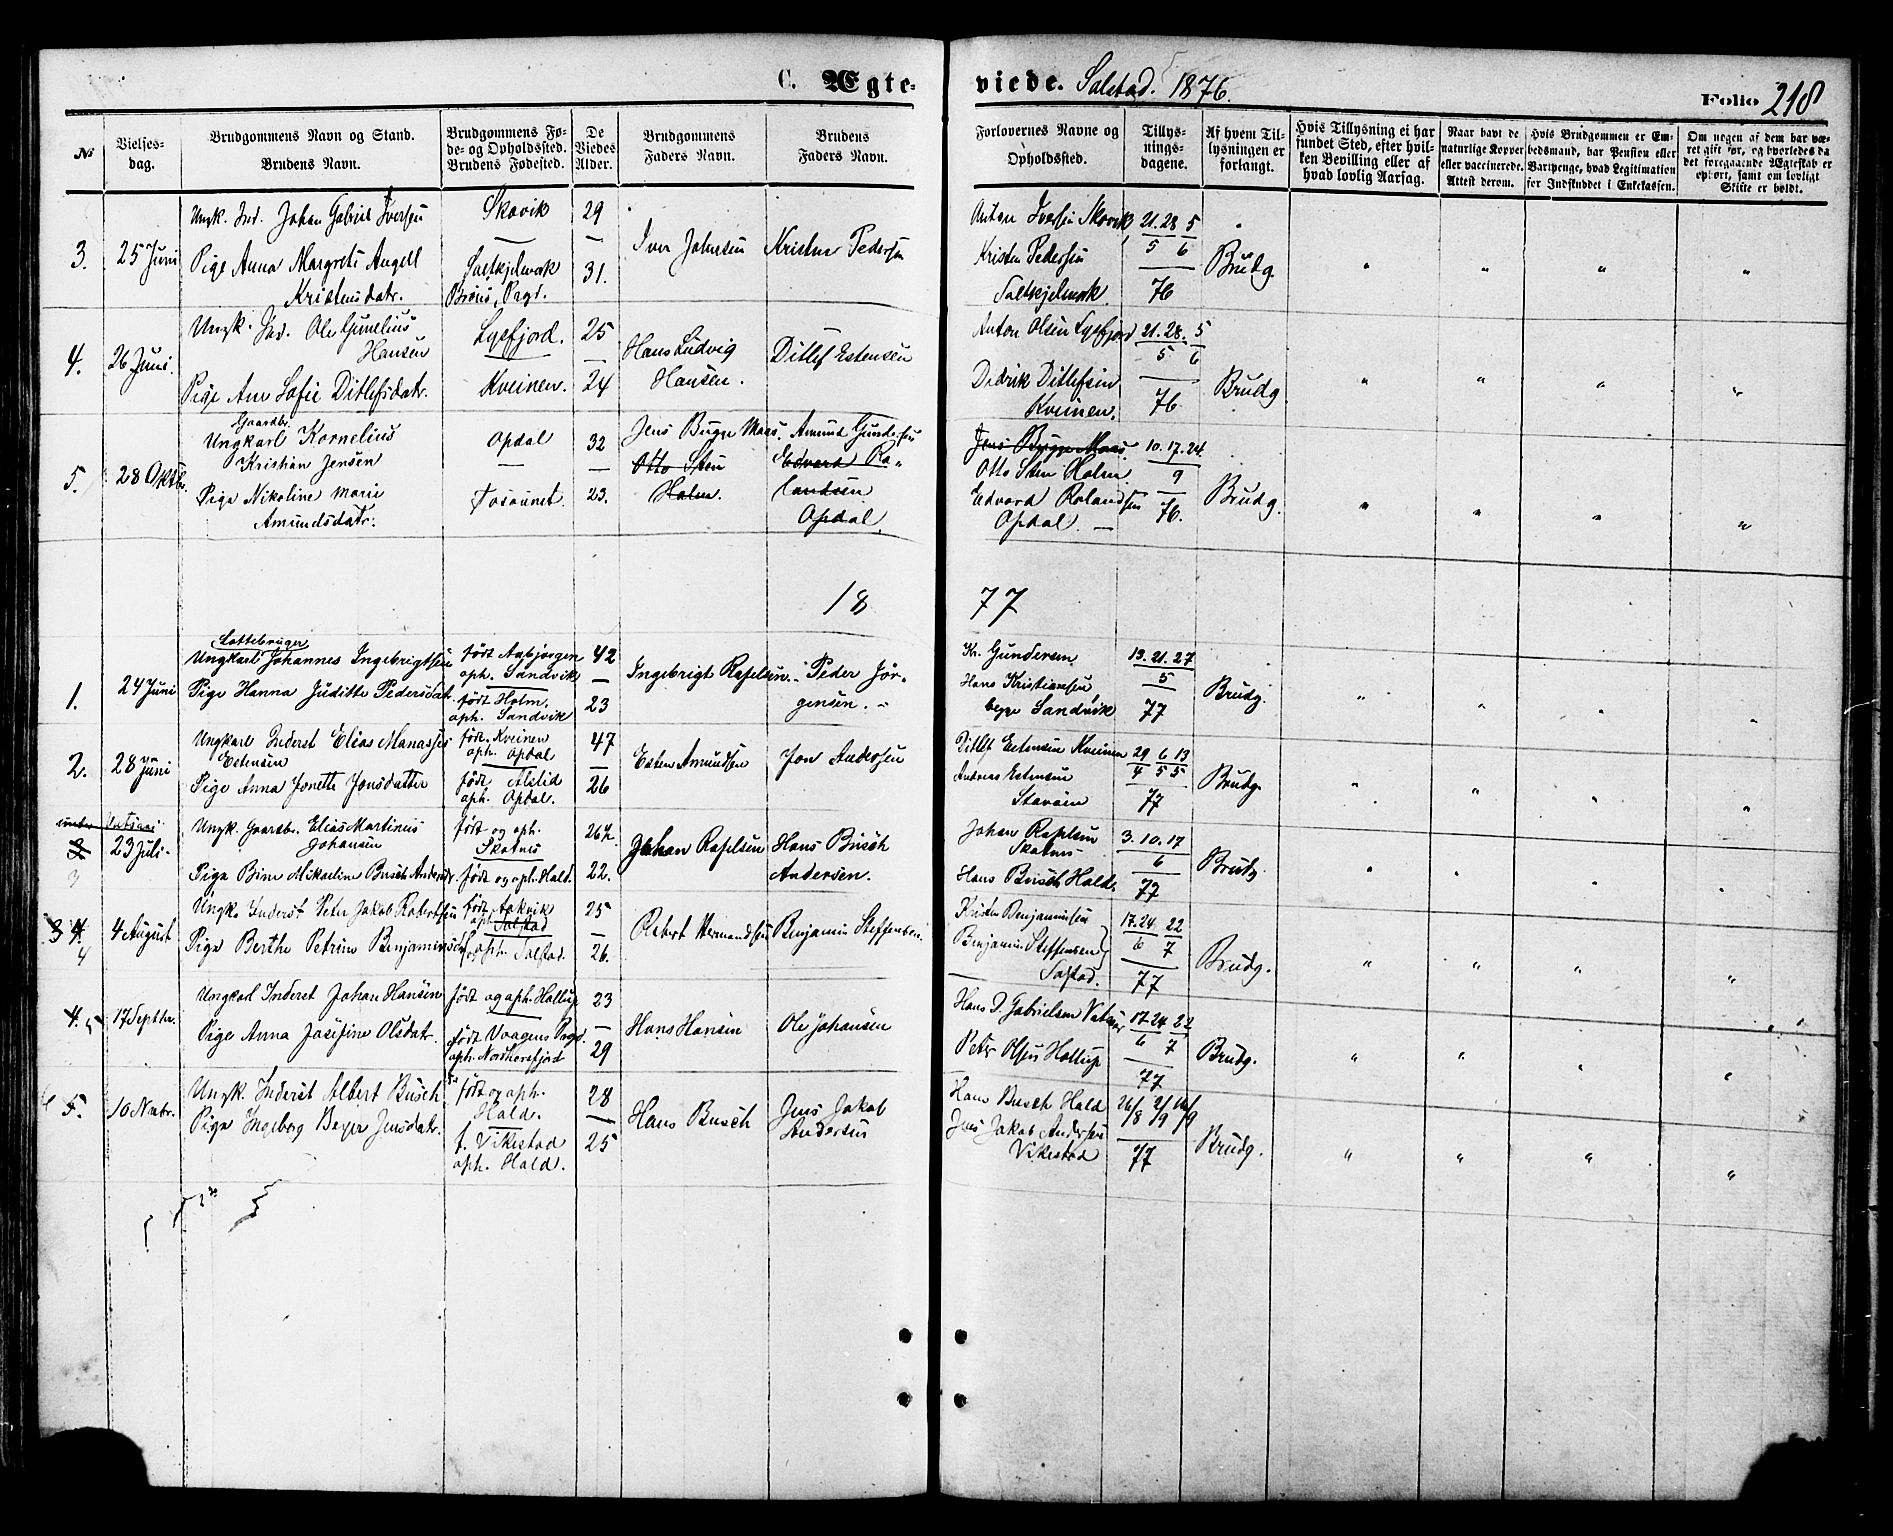 C. Ægte-
viede. Salstad. 1876.
Folio 218
No
Vielses-
dag.
Brudgommens Navn og Stand.
Brudens Navn.
Brudgommens Fø-
de- og Opholdssted.
Brudens Fødested.
De
Viedes
Alder.
Brudgommens
Faders Navn.
Brudens
Faders Navn.
Forlovernes Navne og
Opholdssted.
Tillys-
nings-
dagene.
Af hvem Til-
lysningen er
forlangt.
Hvis Tillysning ei har
fundet Sted, efter hvil-
ken Bevilling eller af
hvad lovlig Aarsag.
Naar havt de
naturlige Kopper
eller vaccinerede.
Attest derom.
Hvis Brudgommen er Em-
bedsmand, har Pension eller
Vartpenge, hvad Legitimation
for Indskuddet i Enkekassen.
Om nogen af dem har væ-
ret gift før, og hvorledes da
det foregaaende Ægteskab er
ophørt, samt om lovligt
Skifte er holdt.
3. 25 Juni
Ungk. Ind. Johan Gabriel Iversen
Pige Anna Margrete Angell
Kristensdatr.
Skavik
Saltkjelvvk
Brøns. Prgd.
29
—
31.
Iver Johnsen
Kristen Pedersen
Anton Iversen Skavik
Kristen Pedersen
Saltkjelvvk
21. 28 5
5 6
76
Brudg.
" " " "
4. 26 Juni.
Ungk. Ind. Ole Gunelius
Hansen
Pige Ane Sofie Ditlefsdatr.
Lysfjord.
Kveinen.
25
—
24
Hans Ludvig
Hansen.
Ditlef Estensen
Anton Olsen Lysfjord
Didrik Ditlefsen
Kveinen.
21. 28. 5
5 6
76
Brudg
" " " "
5. 28 Oktbr.
Gaardbr.
Ungkarl Kornelius
Kristian Jensen
Pige Nikoline Marie
Amundsdatr.
Opdal
—
Tosøunet
32
—
23.
Jens Bugge Maas.
Otto Sten
Holm.
Amund Gundersen
Edvard Ro-
landsen
Opdal.
Jens Bugge Maas
Otto Sten Holm
Edvard Rolandsen
Opdal. —
10. 17. 24
9
76.
Brudg.
" " " "
18 77
1. 24 Juni
Slottebruger
Ungkarl Johannes Ingebrigtsen
Pige Hanna Juditte Pedersdat.
født Asbjørgen
oph. Sandvik
født Holm.
oph. Sandvik
42
—
23
Ingebrigt Rafelsen.
Peder Jør-
gensen.
Kr. Gundersen
Hans Kristiansen
begge Sandvik
13. 21. 27
5
77
Brudg.
" " " "
2. 28 Juni
Ungkarl Inderst Elias Manasses
Estensen
Pige Anna Jonette Jonsdatter
født Kveinen
oph. Opdal
født Alstid
oph. Opdal.
47
—
26
Esten Amundsen
Jon Andersen
Ditlef Estensen Kveinen
Andreas Estensen
Stavøen
29 6 13
4 5 5
77
Brudg.
" " " "
3 23 Juli.
3
Ungk. Gaardbr. Elias Martinius
Johansen
Pige Bine Mikaeline Busch Andersdr.
født og oph.
Skotnes
født og oph. Hald.
26½
22.
Johan Rafelsen
Hans Busch
Andersen.
Johan Rafelsen
Skotnes
Hans Busch Hald.
3. 10. 17
6
77
Brudg.
" " " "
3 4. 4 August
4
Ungk. Inderst Peter Jakob Robertsen
Pige Berthe Petrine Benjaminsdr
født Aakvik
oph. Salstad
f. og oph. Salstad.
25
—
26.
Robert Hermandsen
Benjamin Steffensen.
Kristen Benjaminsen
Benjamin Steffensen
Salstad.
17. 24 22
6 7
77
Brudg.
" " " "
4. 5 17 Septbr.
Ungkarl Inderst Johan Hansen
Pige Anna Josefine Olsdatr.
født og oph. Hollup
født Vaagens Prgd.
oph. Nordhorsfjord
23
—
29
Hans Hansen
Ole Johansen
Hans D. Gabrielsen Vatnes
Peter Olsen Hollup
17. 24 22
6 7
77
Brudg.
" " " "
6 5. 10 Novbr.
Ungk. Inderst Albert Busch
Pige Ingeborg Beyer Jensdatr.
født og oph.
Hald.
f. Vikestad
oph. Hald.
28
—
25
Hans Busch
Jens Jakob
Andersen
Hans Busch Hald
Jens Jakob Andersen
Vikestad
26/8 2/9 16/9
77
Brudg.
" " " "